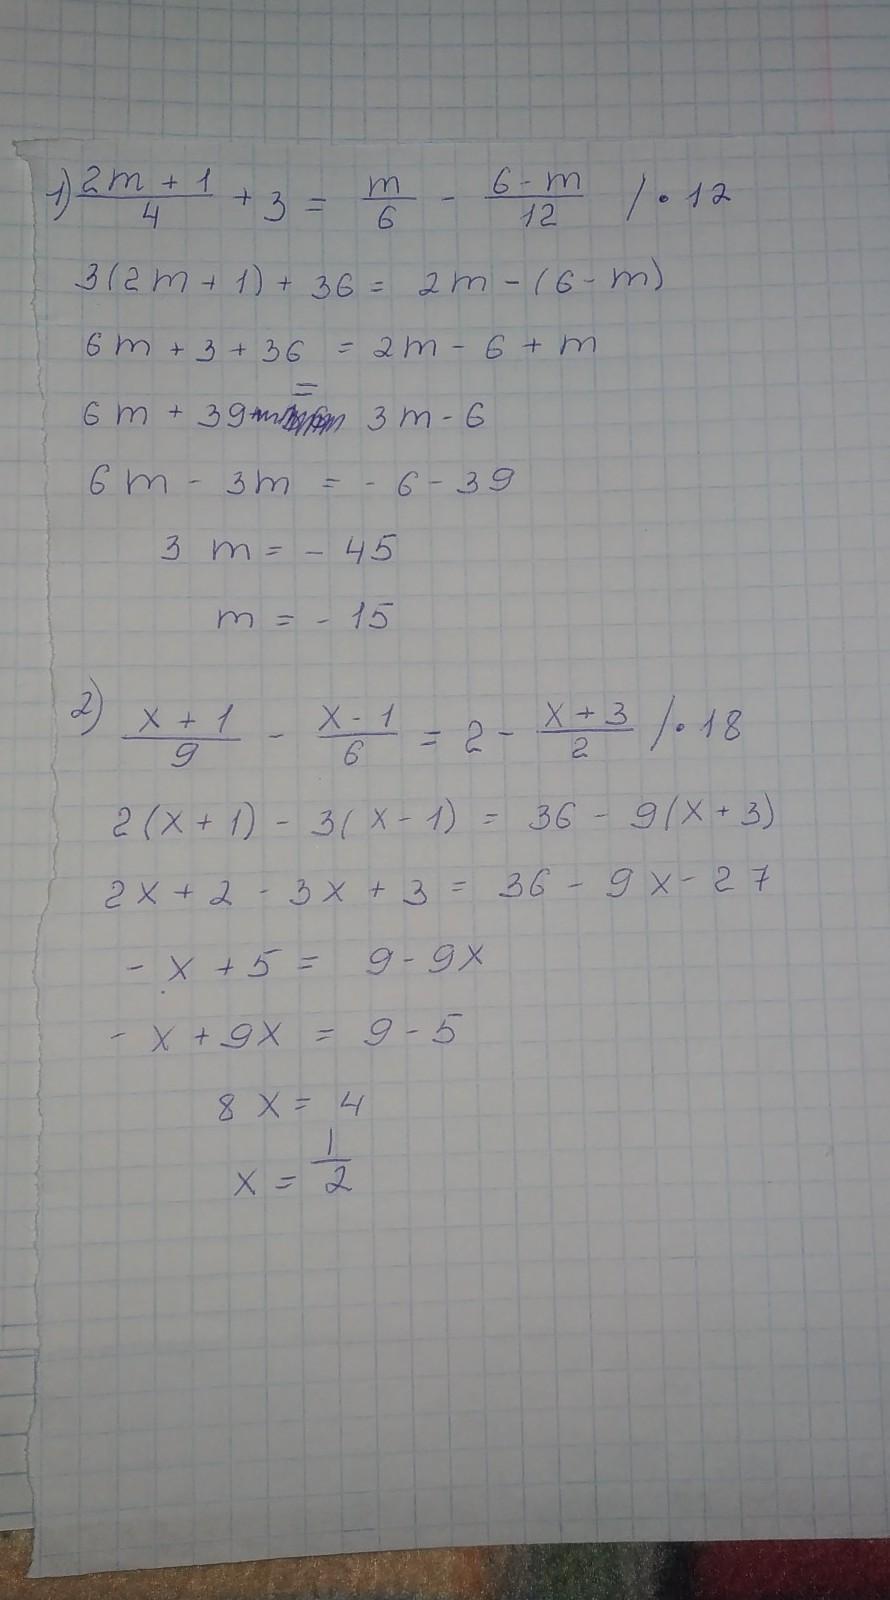 1) (2m + 1)/4 + 3 = m/6 - (6 - m)/12 / · 12
3(2m + 1) + 36 = 2m - (6 - m)
6m + 3 + 36 = 2m - 6 + m
6m + 39 = 3m - 6
6m - 3m = - 6 - 39
3m = - 45
m = - 15
2) (x + 1)/9 - (x - 1)/6 = 2 - (x + 3)/2 / · 18
2(x + 1) - 3(x - 1) = 36 - 9(x + 3)
2x + 2 - 3x + 3 = 36 - 9x - 27
- x + 5 = 9 - 9x
- x + 9x = 9 - 5
8x = 4
x = 1/2